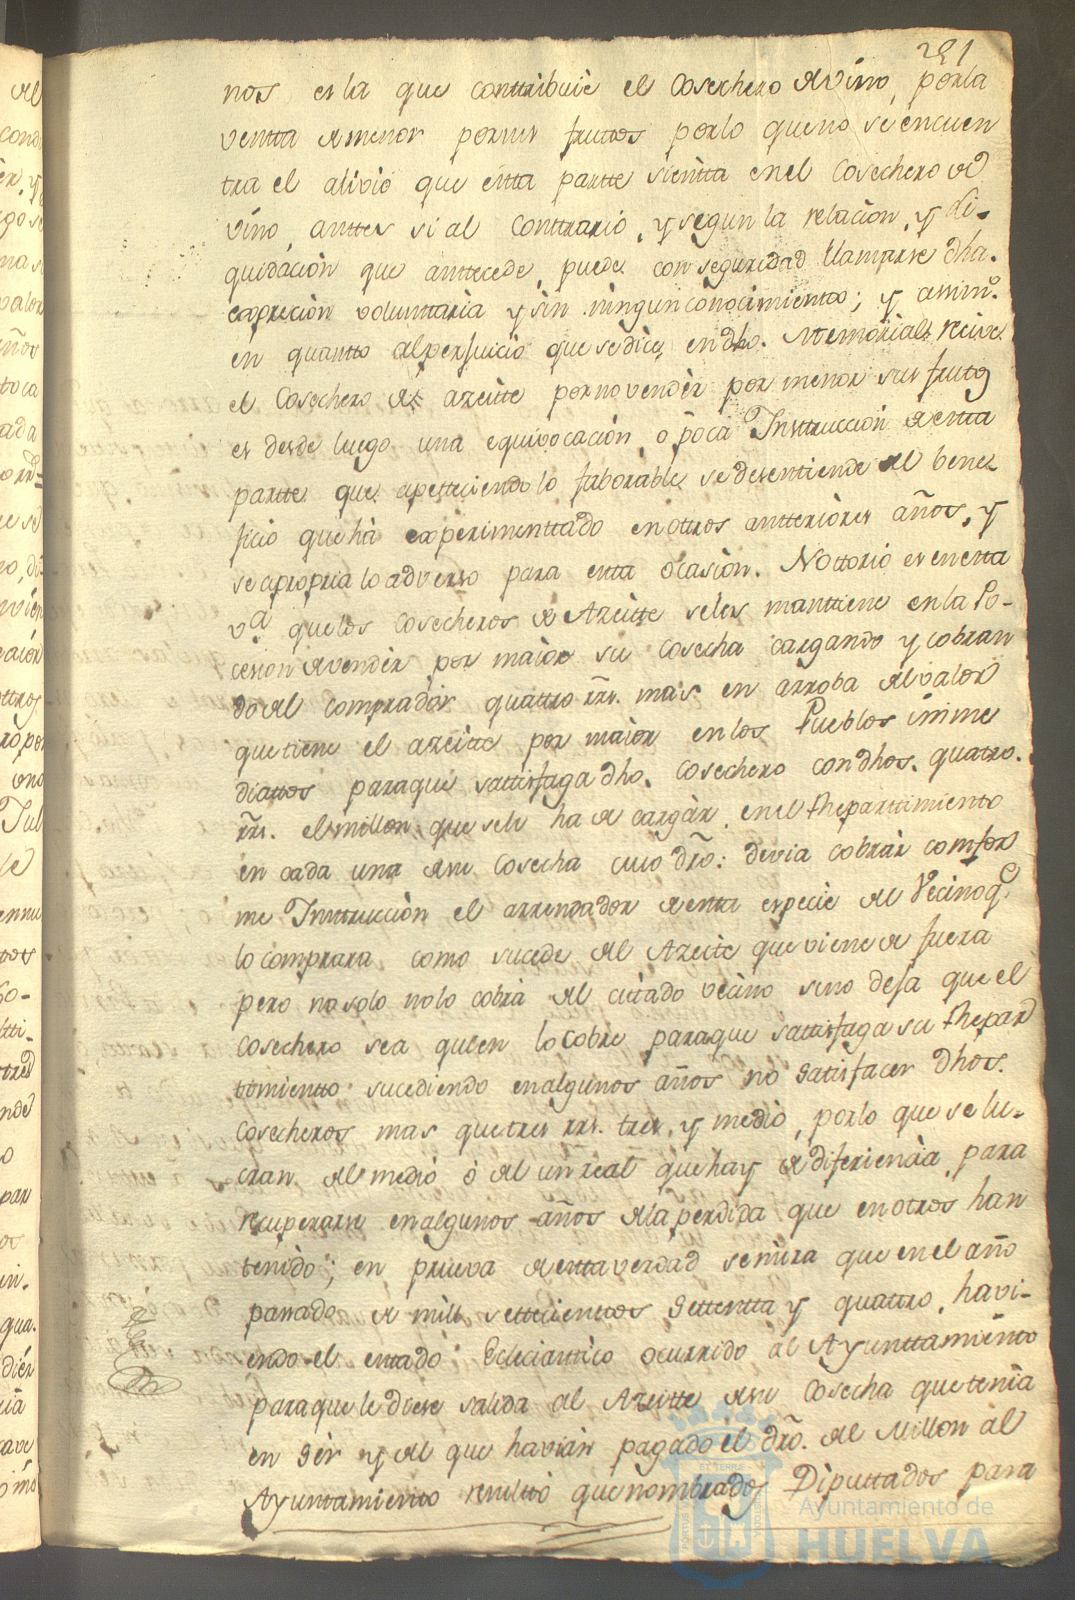 251
nos es la que conttribuie el Cosechero de vino, por la
ventta de menor por sus fruttos por lo que no se encuen
tra el alivio que estta partte sientta en el Cosechero de
vino, anttes si al Conttrario, y segun la relacion, y li-
quidacion que anttecede, puede con seguridad llamarse dha.
expresion voluntaria y sin ningun conocimientto; y assim.o
en quantto al perjuicio que se dice, en dho. Memorial, recive
el Cosechero de azeitte por no vendèr por menor sus frutos
es desde luego una equivocación, o poca Insttrucción de estta
partte que apetteciendo lo faborable se desentiende del bene-
ficio que hà experimenttado en otros antteriòres años, y
se apropria lo adverso para estta ocasiòn. Nottorio es en estta
v.a que los Cosecheros de Azeitte se les manttiene en la Po-
cesion de vendèr por maior su cosecha cargando y cobran
do del comprador quattro rrs. mas en arroba del valor
que tiene el azeitte por maiòr en los Pueblos inme
diattos para que sattisfaga dho. Cosechero con dhos. quatro.
rrs. el millon que se le ha de cargàr en el Repartimiento
en cada una de su Cosecha cuio dro: devia cobràr comfor
me Insttrucciòn el arrendador de estta especie del Vecino q.e
lo comprara como sucede del Azeite que viene de fuera
pero no solo no lo cobrà del cittado vecino sino deja que el
Cosechero sea quien lo cobre para que sattisfaga su Repar
timientto sucediendo en algunos años no sattisfacer dhos.
Cosecheros mas que tres rrs. tres, y medio, por lo que se lu-
cran del medio ò del un real que hay de diferiencia para
recuperarse en algunos años de la perdida que en otros han
tenido; en prueva de esta verdad se mira que en el año
passado de mill settecienttos settentta y quattro, havi-
endo el estado Eclesiasttico ocurrido al Ayunttamiento
para que le diese salida al Azeitte de su Cosecha que tenia
en ser y del que haviàn pagado el dro. del Millon al
Ayuntamiento resultò que nombrados Diputtados para
Ayuntamiento de
HUELVA